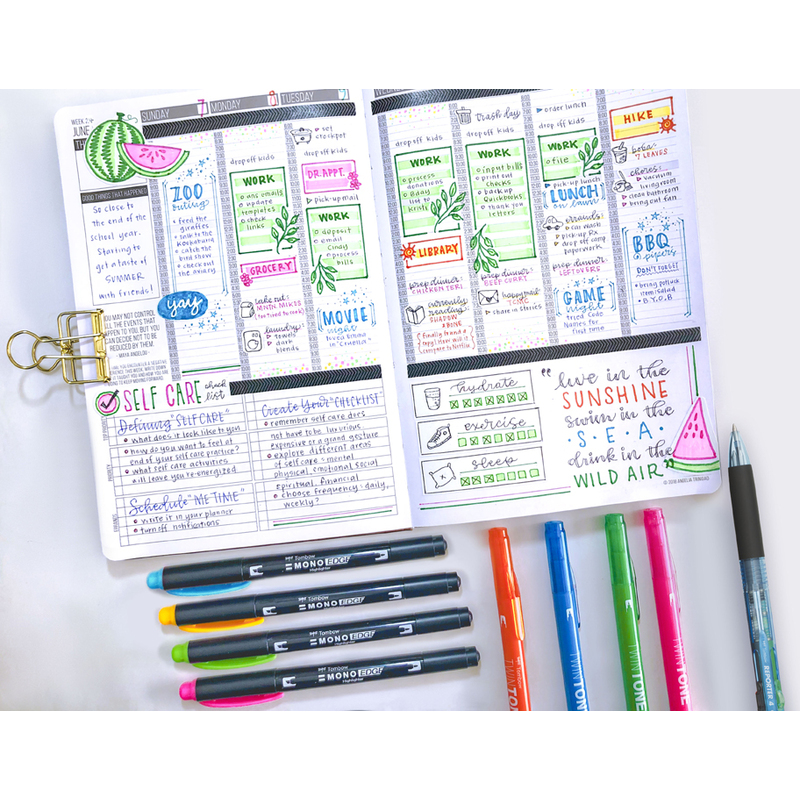 WEEK 24
JUNE
SUNDAY
GOOD THINGS THAT HAPPENED
So close to
the end of the
school year.
Starting to
get a taste of
SUMMER
with friends!
YOU MAY NOT CONTROL
ALL THE EVENTS THAT
HAPPEN TO YOU, BUT YOU
CAN DECIDE NOT TO BE
REDUCED BY THEM.
- MAYA ANGELOU
ZOO
outing
feed the
giraffes
talk to the
kookaburra
catch the
bird show
check out
the aviary
yay
MONDAY
drop off kids
WORK
ans emails
update
templates
check
links
GROCERY
take out:
laundry:
towels
dark
blonds
TUESDAY
set
crockpot
drop off kids
DR. APPT.
pick up mail
WORK
deposit
email
Cindy
process
lists
MOVIE
night
drop off kids
WORK
process
donations
Bday
list to
Kristy
LIBRARY
prep dinner:
CHICKEN TERI
currently
reading:
SHADOW
& BONE
(finally found a
copy! Now will it
compare to Netflix
trash day
drop off kids
WORK
input bills
print out
checks
backup
Quickbooks
thank you
letters
prep dinner:
BEEF CURRY
happy mail
share in stories
order lunch
drop off kids
WORK
file
pick up lunch
LUNCH
errands:
car wash
pick up Rx
drop off comp
paperwork
prep dinner:
LEFTOVERS
GAME
night
tried Code
Names for
first time
HIKE
boba:
7 LEAVES
chores:
vacuum
living room
clean bathroom
bring out fan
BBQ
DON'T FORGET!
bring potluck
item: salad
B.Y.O.B
SELF CARE check
list
Defining "SELF CARE"
what does it look like to you
how do you want to feel at
end of your self care practice?
what self care activities
will leave you re-energized
Schedule "ME TIME"
write it in your planner
turn off notifications
Create Your "CHECKLIST"
remember self care does
not have to be luxurious
expensive or a grand gesture
explore different areas
of self care - mental
physical, emotional, social
spiritual, financial
choose frequency - daily,
weekly?
hydrate
exercise
sleep
"live in the
SUNSHINE
swim in the
S·E·A·
drink in the
WILD AIR"
Tombow
MONO EDGE
Highlighter
Tombow
MONO EDGE
Highlighter
Tombow
MONO EDGE
Highlighter
Tombow
MONO EDGE
Highlighter
TWINTONE
TWINTONE
TWINTONE
TWINTONE
REPORTER 4